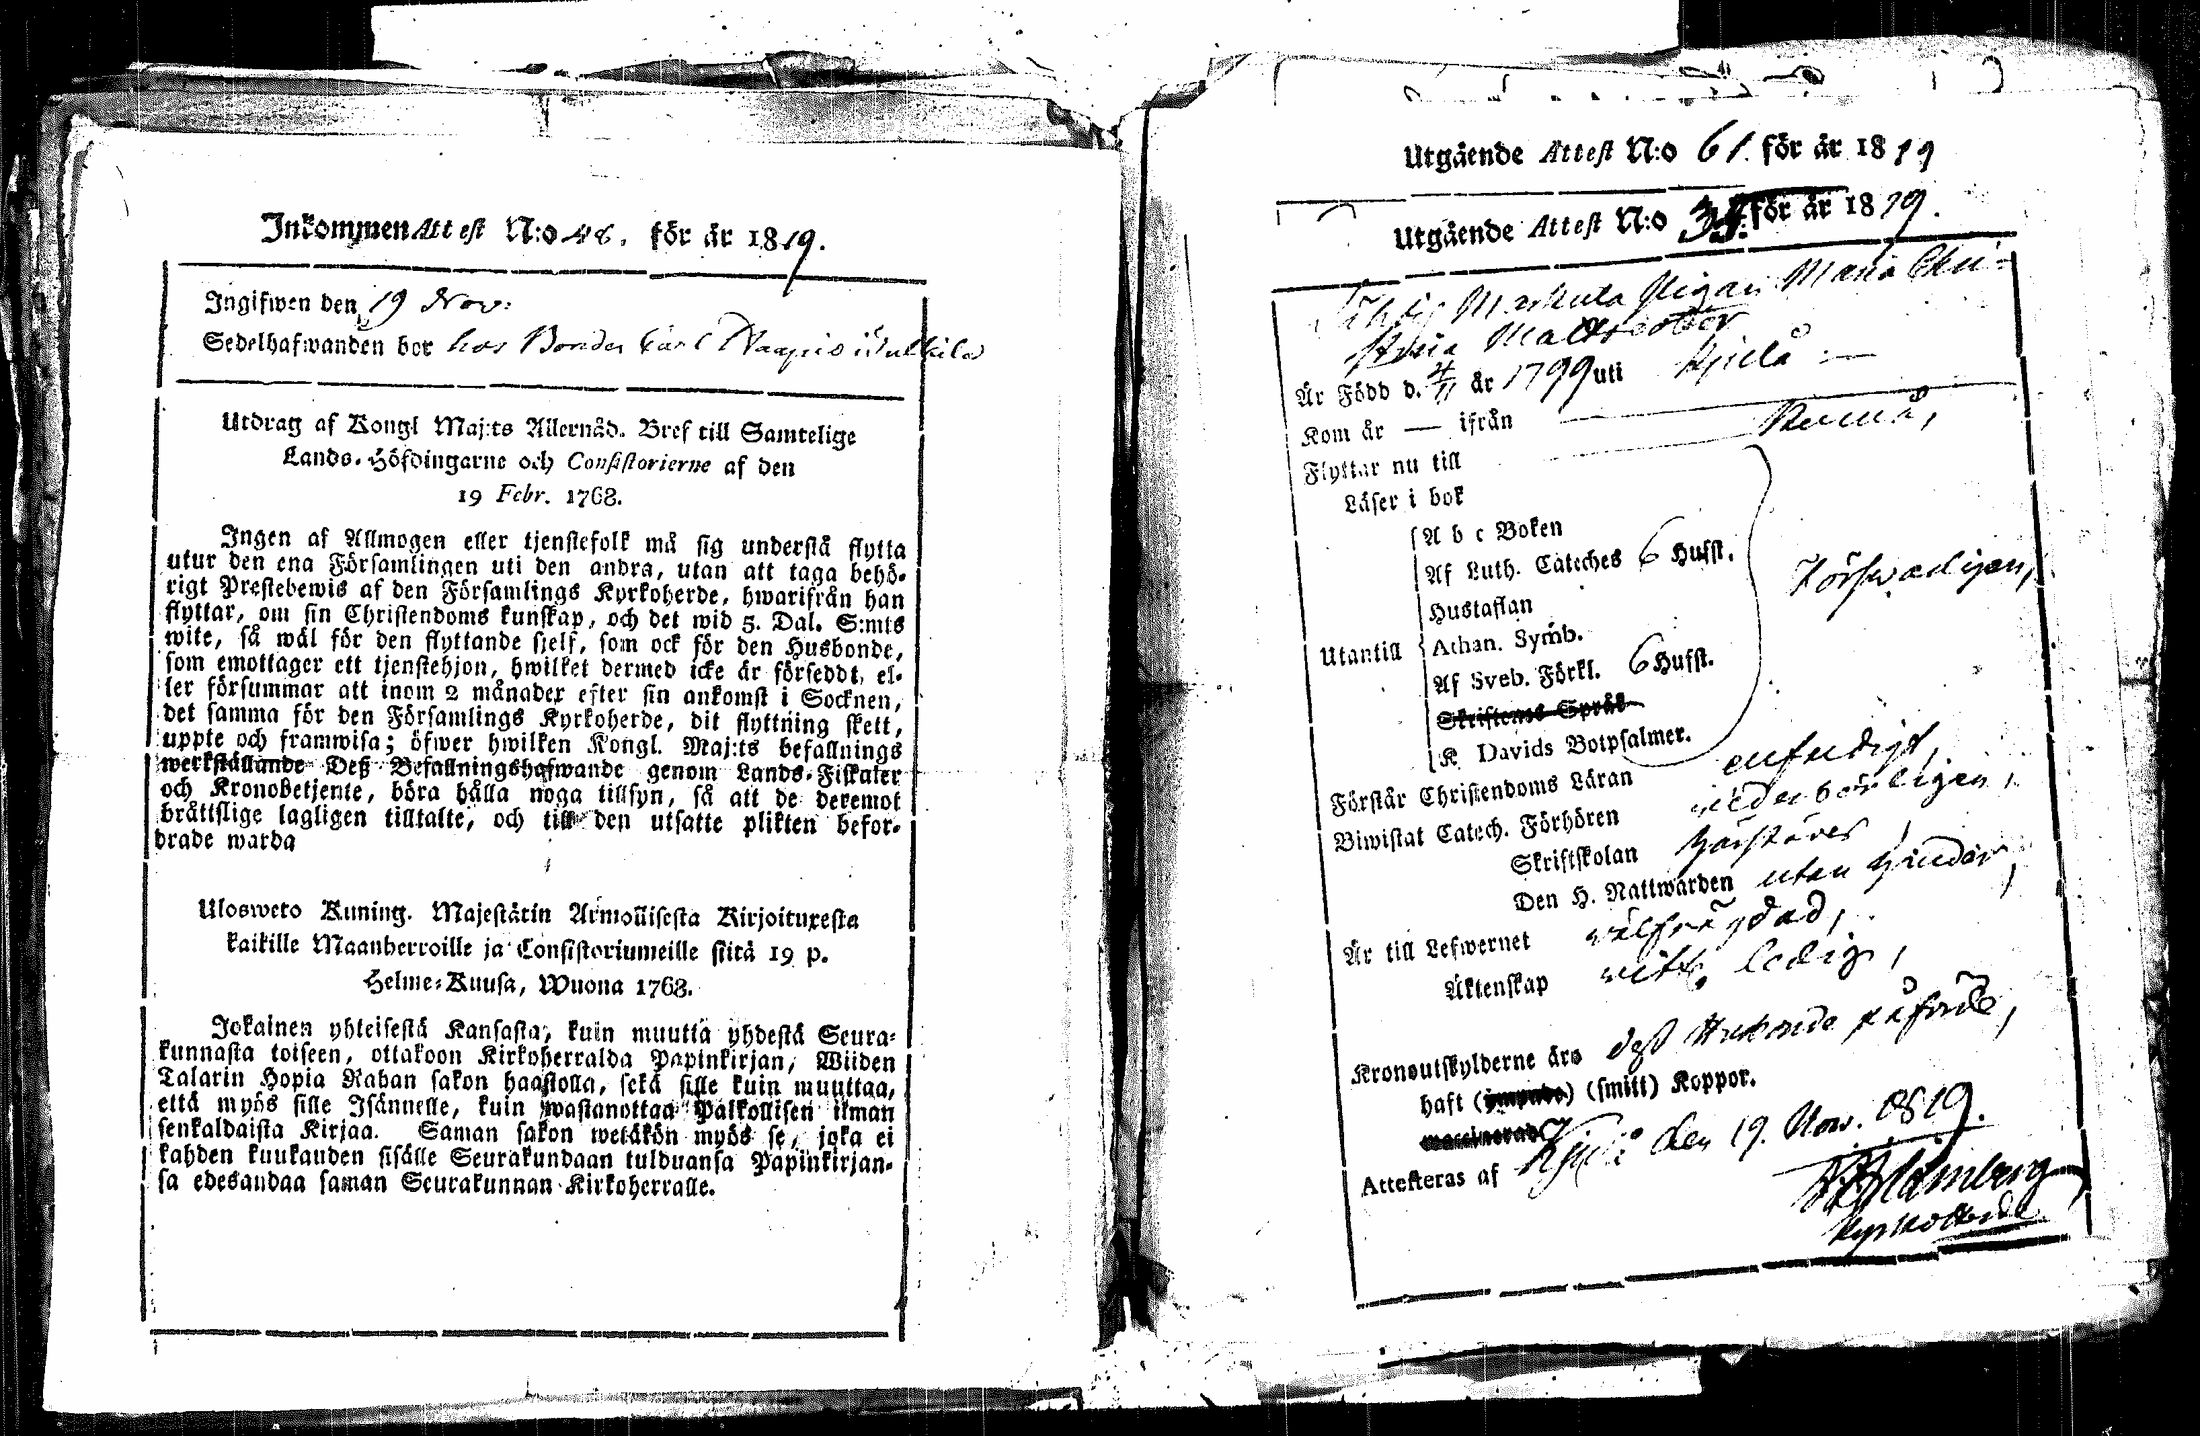 Inkommen Attest N:o 48. för år 1819.
Ingifwen den 19 Nov:
Sedelhafwanden bor hos Bonden Carl
Utdrag af Kongl Maj:ts Allernåd. Bref till Samtelige
Lands-Höfdingarne och Consistorierne af den
19 Febr. 1768.
Ingen af Allmogen eller tjenstefolk må sig understå flytta
utur den ena Församlingen uti den andra, utan att taga behö-
rigt Prestebewis af den Församlings Kyrkoherde, hwarifrån han
flyttar, om sin Christendoms kunskap, och det wid 5. Dal. S:mts
wite, så wäl för den flyttande sjelf, som ock för den Husbonde,
som emottager ett tjenstehjon, hwilket dermed icke är förseddt, el-
ler försummar att inom 2 månader efter sin ankomst i Socknen,
det samma för den Församlings Kyrkoherde, dit flyttning skett,
uppte och framwisa; öfwer hwilken Kongl. Maj:ts befallnings
werkställande Deß Befallningshafwande genom Lands-Fiskaler
och Kronobetjente, böra hålla noga tillsyn, så att de deremot
bråttslige lagligen tilltalte, och till den utsatte plikten befor-
drade warda
Ulosweto Kuning. Majestätin Armollisesta Kirjoituxesta
kaikille Maanherroille ja Consistoriumeille siitä 19 p.
Helme-Kuusa, Wuona 1768.
Jokainen yhteisestä Kansasta, kuin muutta yhdestä Seura-
kunnasta toiseen, ottakoon Kirkoherralda Papinkirjan, Wiiden
Talarin Hopia Rahan sakon haastolla, sekä sille kuin muuttaa,
että myös sille Isännelle, kuin wastanottaa Palkollisen ilman
senkaldaista Kirjaa. Saman sakon wetäkön myös se, joka ei
kahden kuukauden sisälle Seurakundaan tulduansa Papinkirjan-
sa edesandaa saman Seurakunnan Kirkoherralle.
Utgående Attest N:o 61. för år 1819
Utgående Attest N:o 35. för år 1819.
Markula Pigan Maria Chri-
stina Mattsdotter
Är Född d. 4/11 år 1799 uti Kjulå
Kom år — ifrån —
Flyttar nu till Reumå,
Läser i bok
A b c Boken
Af Luth. Cateches 6 Hufst.
Hustaflan
Utantill Athan. Symb. Försvarligen,
Af Sveb. Förkl. 6 Hufst.
Skriftens Språk
K Davids Botpsalmer.
Förstår Christendoms Läran enfaldigt,
Biwistat Catech. Förhören wederbörligen,
Skriftskolan
Den H. Nattwarden utan hinder,
Är till Lefwernet wälfrägdad,
Äktenskap ledig,
Kronoutskylderne äro deß Husbonde påförde,
haft (ympade) (smitt) Koppor.
(waccinerad)
Attesteras af Kjulå den 19. Nov. 1819.
Blomberg
Kyrkoherde